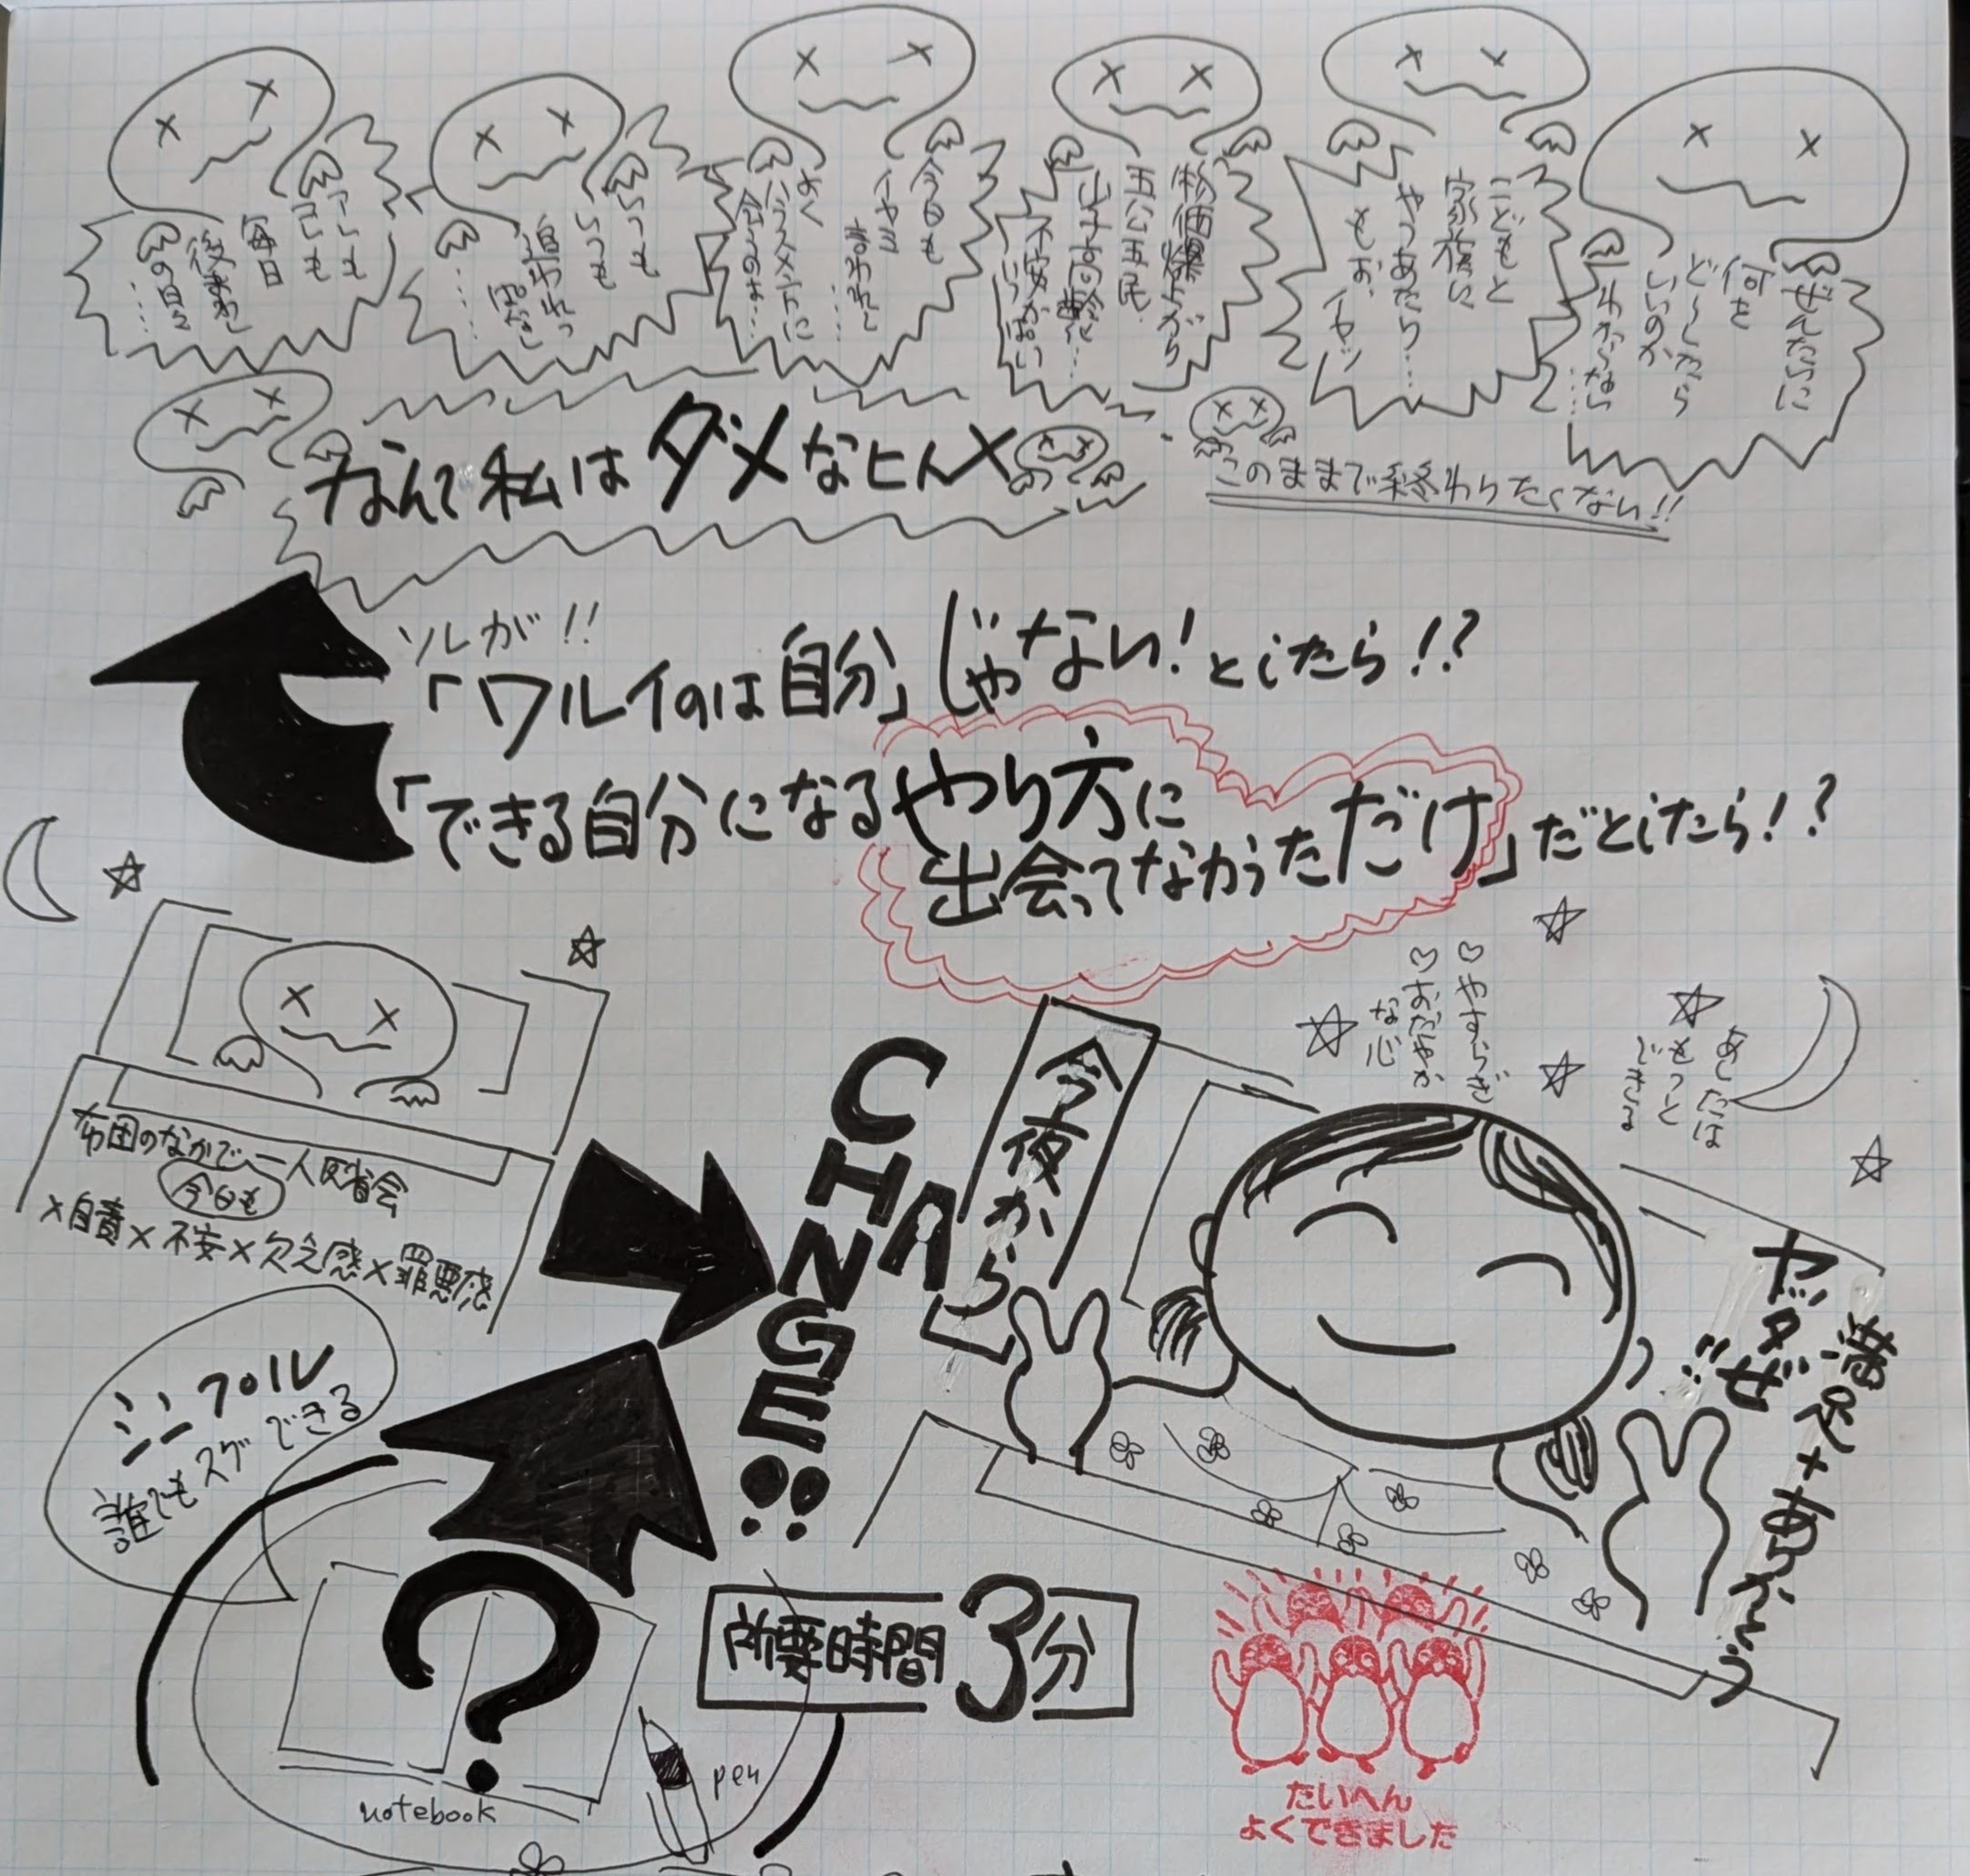 アレも
コレも
毎日
後まわし
の日々
……
いつも
いつも
追われっ
……
今日も
イヤミ
言われ
……
よく
ハラスメントに
会うのは…
物価爆上がり
五公五民
不安がいっぱい
こどもと
家族に
やつあたり…
もお、イヤッ
ぜんたいに
何を
ど〜したら
いいのか
わからない
……
なんて私はダメなヒんメ
このままで終わりたくない!!
ソレが!!
「ワルイのは自分」じゃない!としたら!?
「できる自分になるやり方に
出会ってなかっただけ」だとしたら!?
布団のなかで一人反省会
今日も
×自責×不安×欠乏感×罪悪感
CHANGE!!
今夜から
♡やすらぎ
♡おだやか
な心
あしたは
もっと
できる
ヤッタぜ!!
満足+ありがとう
シンプル
誰でもスグできる
?
notebook
pen
所要時間3分
たいへん
よくできました